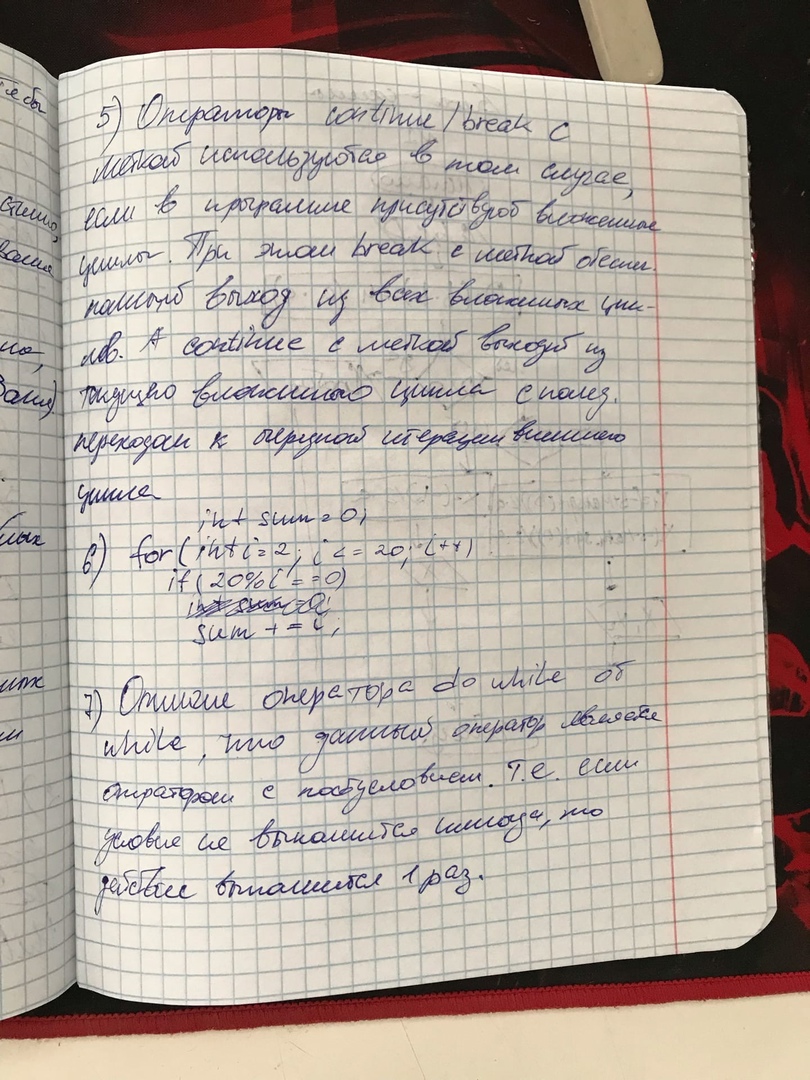 5) Операторы continue/break с
меткой используются в том случае,
если в программе присутствуют вложенные
циклы. При этом break с меткой обеспе-
чивает выход из всех вложенных цик-
лов. А continue с меткой выходит из
текущего вложенного цикла с послед.
переходом к очередной итерации внешнего
цикла
int sum = 0;
6) for (int i = 2; i <= 20; i++)
if (20%i == 0)
int sum = 0;
sum += i;
7) Отличие оператора do while от
while, что данный оператор является
оператором с постусловием. Т.е. если
условие не выполнится никогда, то
действие выполнится 1 раз.
тебы
стимо,
вания
но,
вания)
ных
ных
и